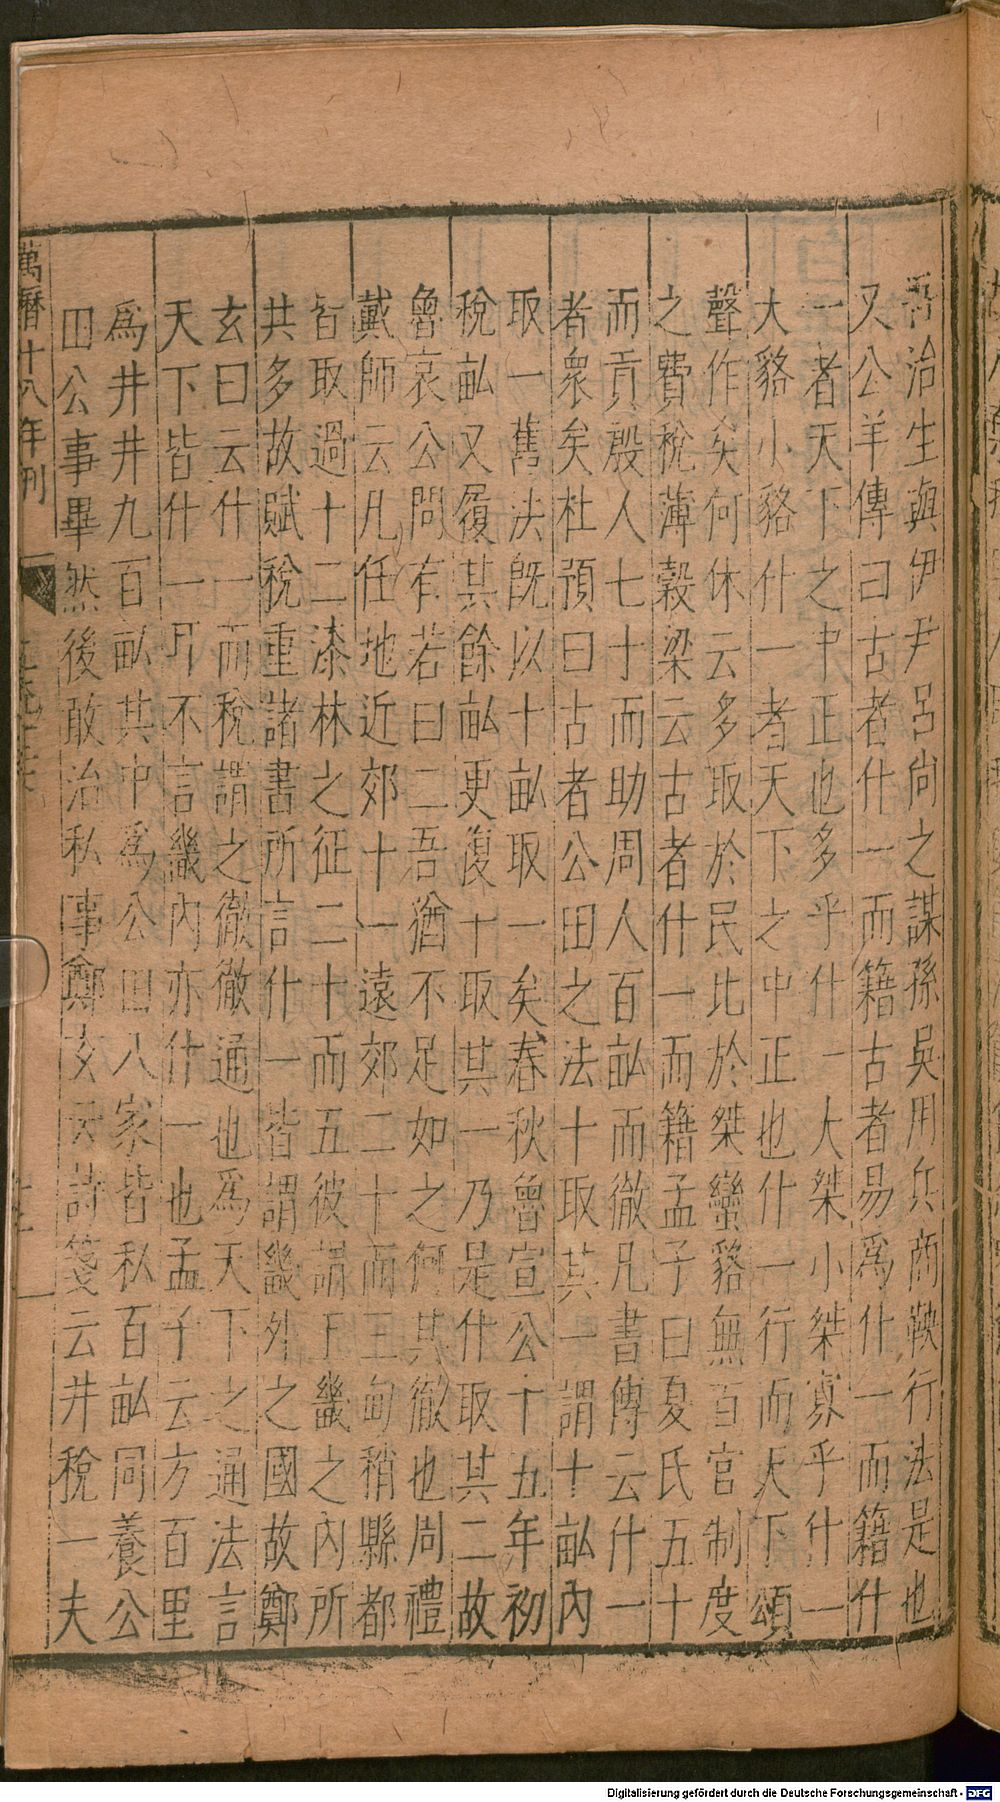 吾治生與伊尹呂尙之謀孫吳用兵商鞅行法是也
又公羊傳曰古者什一而籍古者曷爲什一而籍什
一者天下之中正也多乎什一大桀小桀寡乎什一
大貉小貉什一者天下之中正也什一行而天下頌
聲作矣何休云多取於民比於桀蠻貉無百官制度
之費稅薄穀梁云古者什一而籍孟子曰夏氏五十
而貢殷人七十而助周人百畝而徹凡書傳云什一
者衆矣杜預曰古者公田之法十取其一謂十畝內
取一舊法旣以十畝取一矣春秋魯宣公十五年初
稅畝又履其餘畝更復十取其一乃是什取其二故
魯哀公問有若曰二吾猶不足如之何其徹也周禮
載師云凡任地近郊十一遠郊二十而三甸稍縣都
皆取過十二漆林之征二十而五彼謂王畿之內所
共多故賦稅重諸書所言什一皆謂畿外之國故鄭
玄曰云什一而稅謂之徹徹通也爲天下之通法言
天下皆什一耳不言畿內亦什一也孟子云方百里
爲井井九百畝其中爲公田八家皆私百畝同養公
田公事畢然後敢治私事鄭玄云詩箋云井稅一夫
萬曆十八年刊
Digitalisierung gefördert durch die Deutsche Forschungsgemeinschaft - DFG